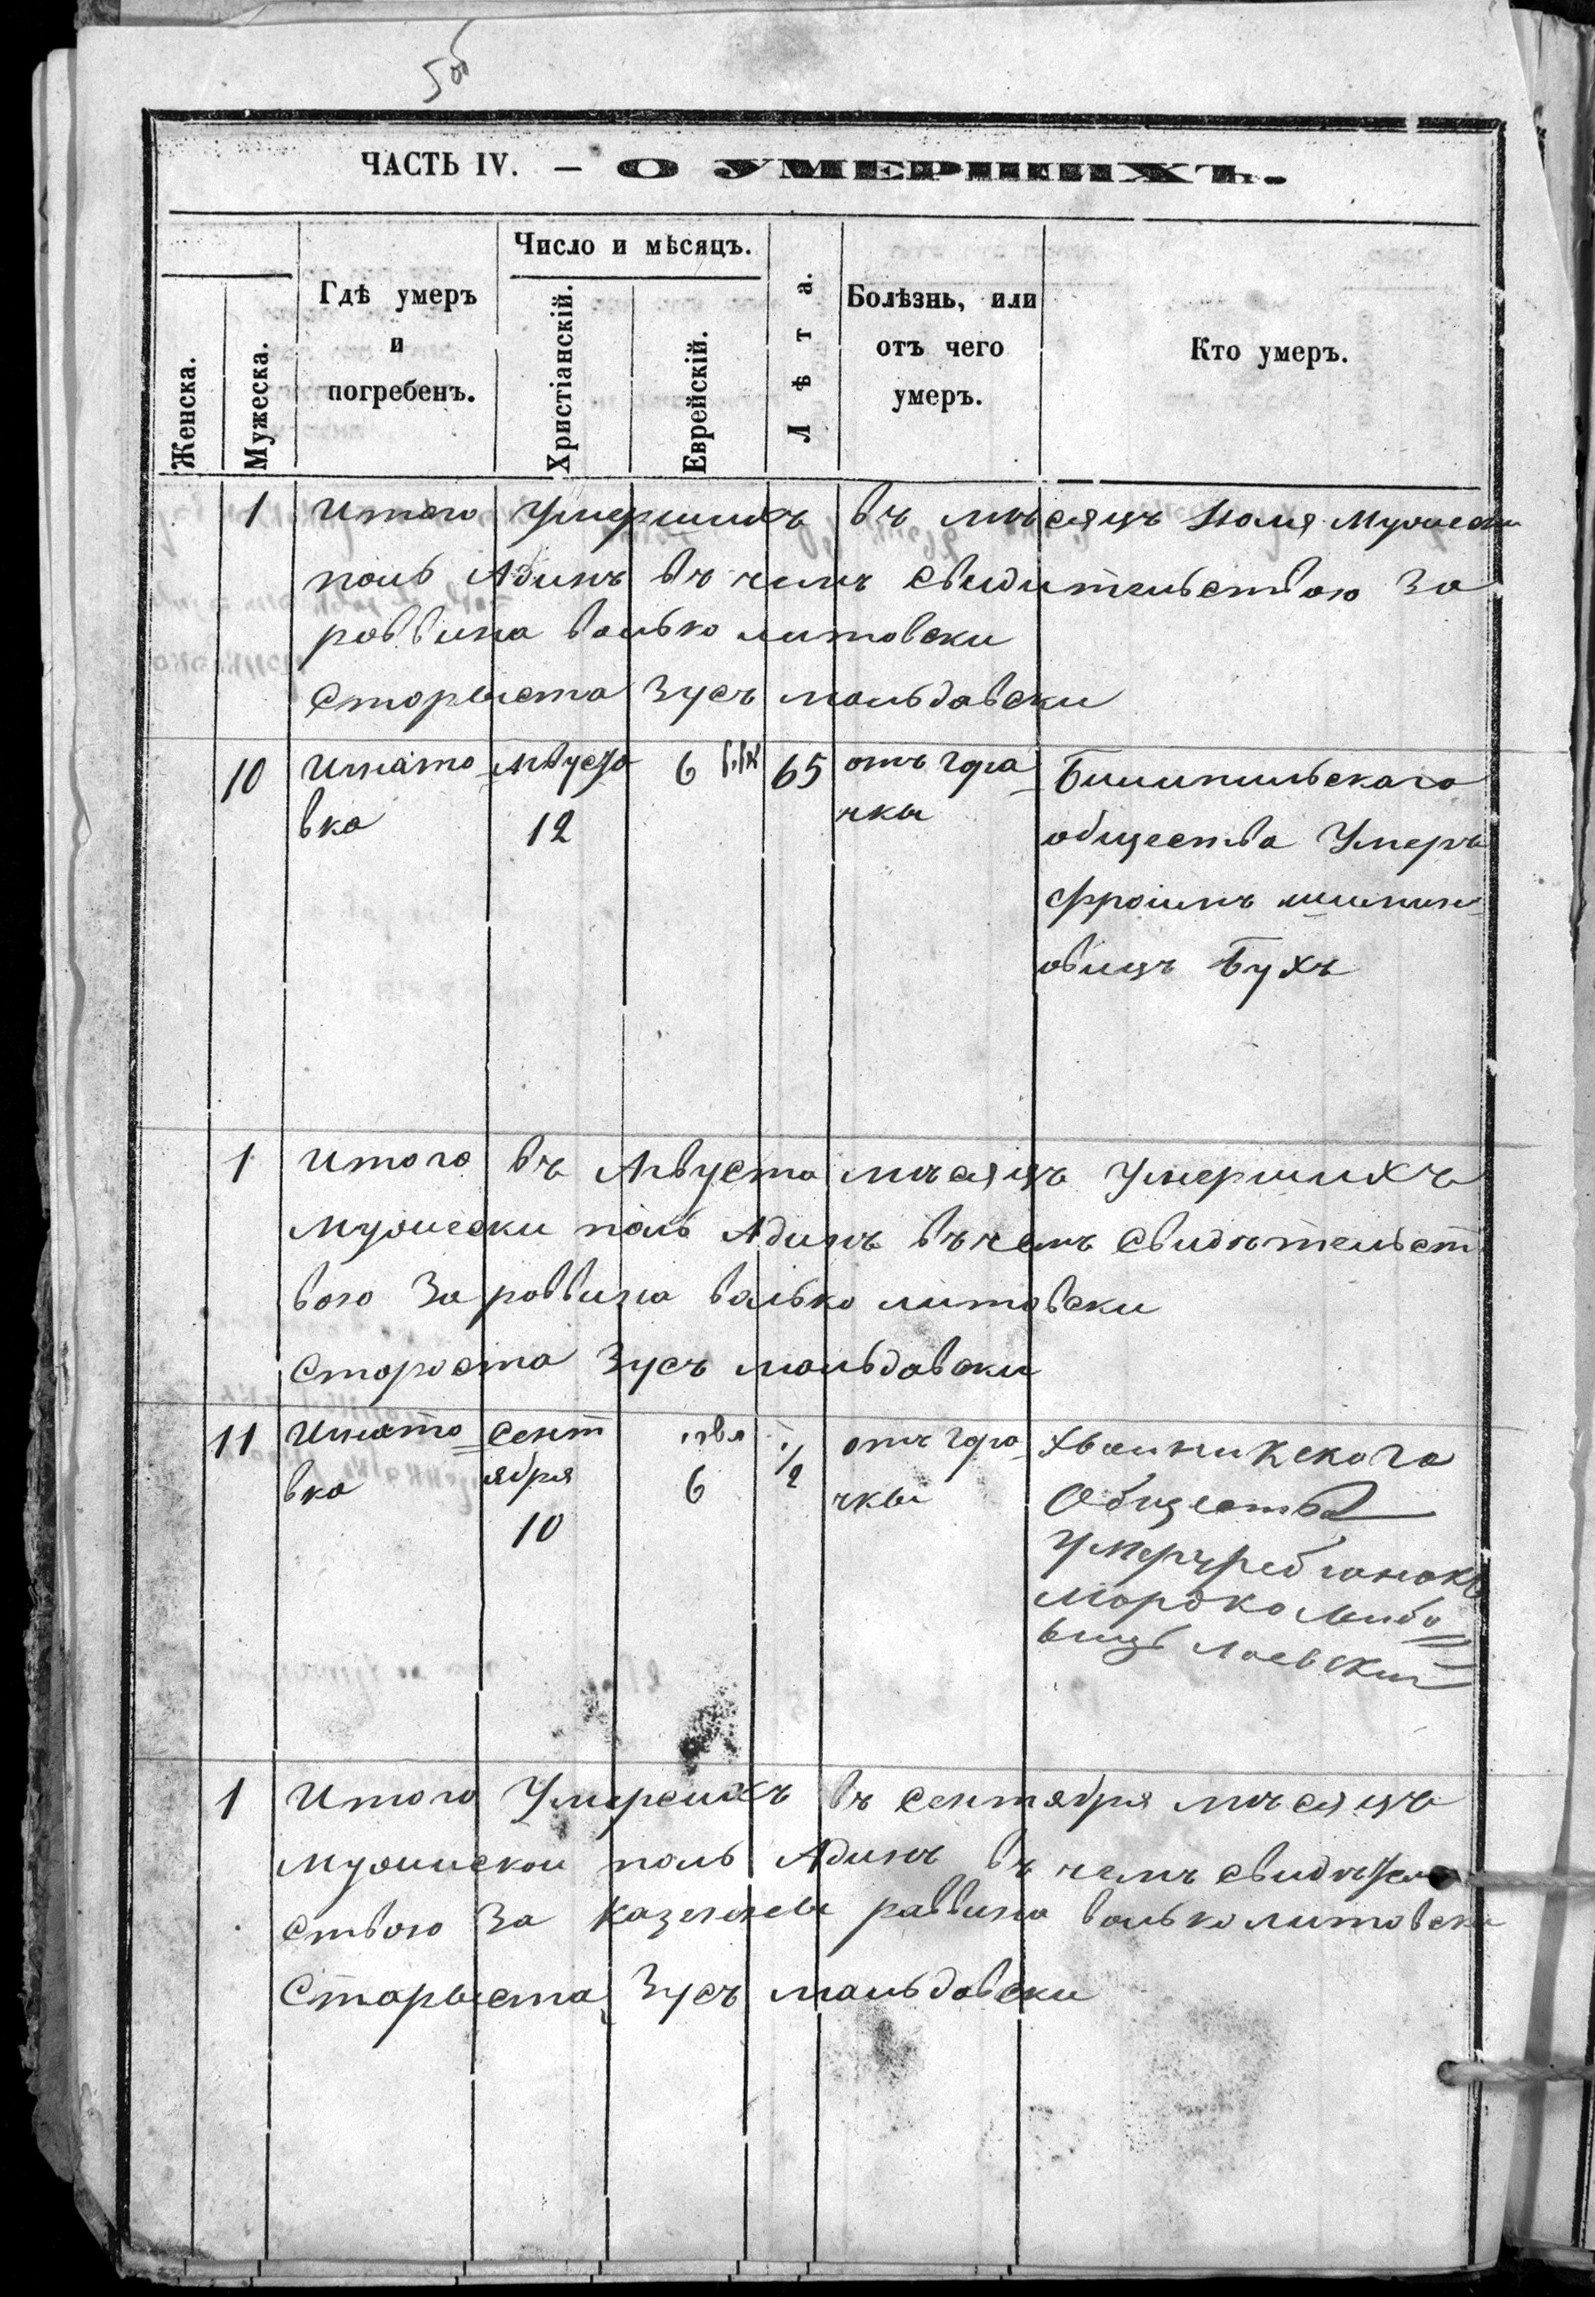 ЧАСТЬ IV. — О УМЕРШИХЪ.
Женска.
Мужеска.
Гдѣ умеръ
и
погребенъ.
Число и мѣсяцъ.
Христіанскій.
Еврейскій.
Лѣта.
Болѣзнь, или
отъ чего
умеръ.
Кто умеръ.
1 Итого Умершихъ въ мѣсяцъ Июля
полъ Адинъ въ чемъ свидителъствою За
раввина Волько литовски
Старыста Зусъ мальдавски
10
Игнато
вка
Августа
12
6
65
отъ гора
чкы
общества Умеръ
Фроимъ
овицъ Бухъ
1 Итого въ Августа мѣсяцъ Умершихъ
Мужески полъ Адинъ въ чемъ свидѣтельст
вою За раввина Волько литовски
Староста Зусъ мальдавски
11
Игнато
вка
Сент
ября
10
6
1/2
отъ гора
чкы
Общества
умеръ ребіонокъ
Мордко Лейбо
вицъ Лаевский
1 Итого Умерсихъ въ сентября мѣсяцъ
полъ Адинъ въ чемъ
ствою За раввина Волько литовски
Старыста Зусъ мальдавски